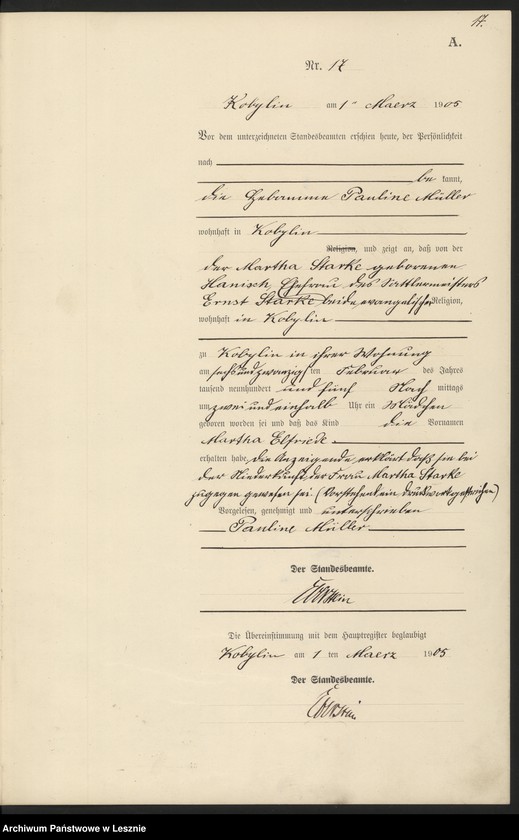 17.
A.
Nr. 17
Kobylin am 1ten Maerz 1905
Vor dem unterzeichneten Standesbeamten erschien heute, der Persönlichkeit
nach
be kannt,
die Hebamme Pauline Müller
wohnhaft in Kobylin
Religion, und zeigt an, daß von der
der Martha Starke geborenen
Hanisch, Ehefrau des Sattlermeisters
Ernst Starke beide evangelischer Religion,
wohnhaft in Kobylin
zu Kobylin in ihrer Wohnung
am sechsundzwanzigsten Februar des Jahres
tausend neunhundert und fünf Nach mittags
um zwei und einhalb Uhr ein Mädchen
geboren worden sei und daß das Kind die Vornamen
Martha Elfriede
erhalten habe, die Anzeigende erklärt daß sie bei
der Niederkunft der Frau Martha Starke
zugegen gewesen sei (Vorstehend ein Druckwort gestrichen)
Vorgelesen, genehmigt und unterschrieben
Pauline Müller
Der Standesbeamte.
Die Übereinstimmung mit dem Hauptregister beglaubigt
Kobylin am 1 ten Maerz 1905
Der Standesbeamte.
Archiwum Państwowe w Lesznie